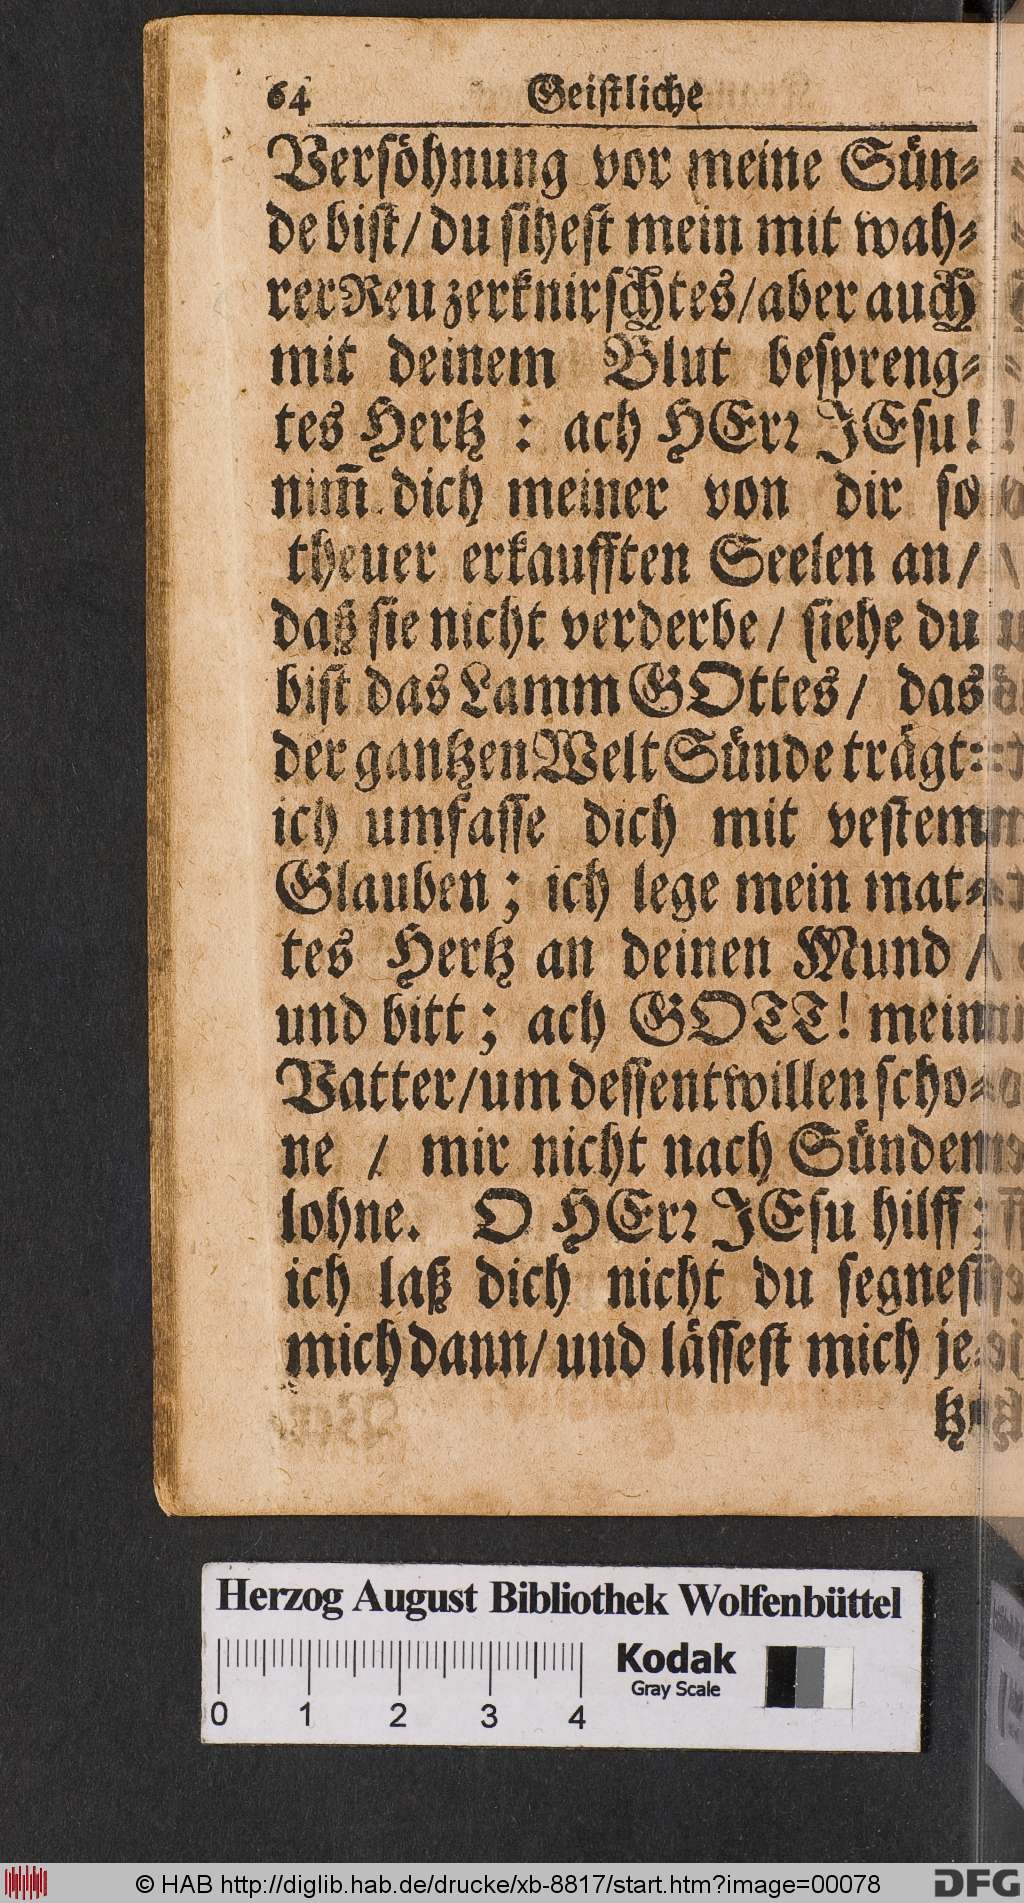 64 Geistliche
Versöhnung vor meine Sün-
de bist/ du sihest mein mit wah-
rer Reu zerknirschtes/ aber auch
mit deinem Blut bespreng-
tes Hertz : ach HErr JEsu!
nim̅ dich meiner von dir so
theuer erkaufften Seelen an/
daß sie nicht verderbe/ siehe du
bist das Lamm GOttes/ das
der gantzen Welt Sünde trägt:
ich umfasse dich mit vestem
Glauben; ich lege mein mat-
tes Hertz an deinen Mund/
und bitt; ach GOTT! mein
Vatter/ um dessentwillen scho-
ne / mir nicht nach Sünden
lohne. O HErr JEsu hilff;
ich laß dich nicht du segnest
mich dann/ und lässest mich je-
tz
Herzog August Bibliothek Wolfenbüttel
Kodak
Gray Scale
0 1 2 3 4
© HAB http://diglib.hab.de/drucke/xb-8817/start.htm?image=00078
DFG